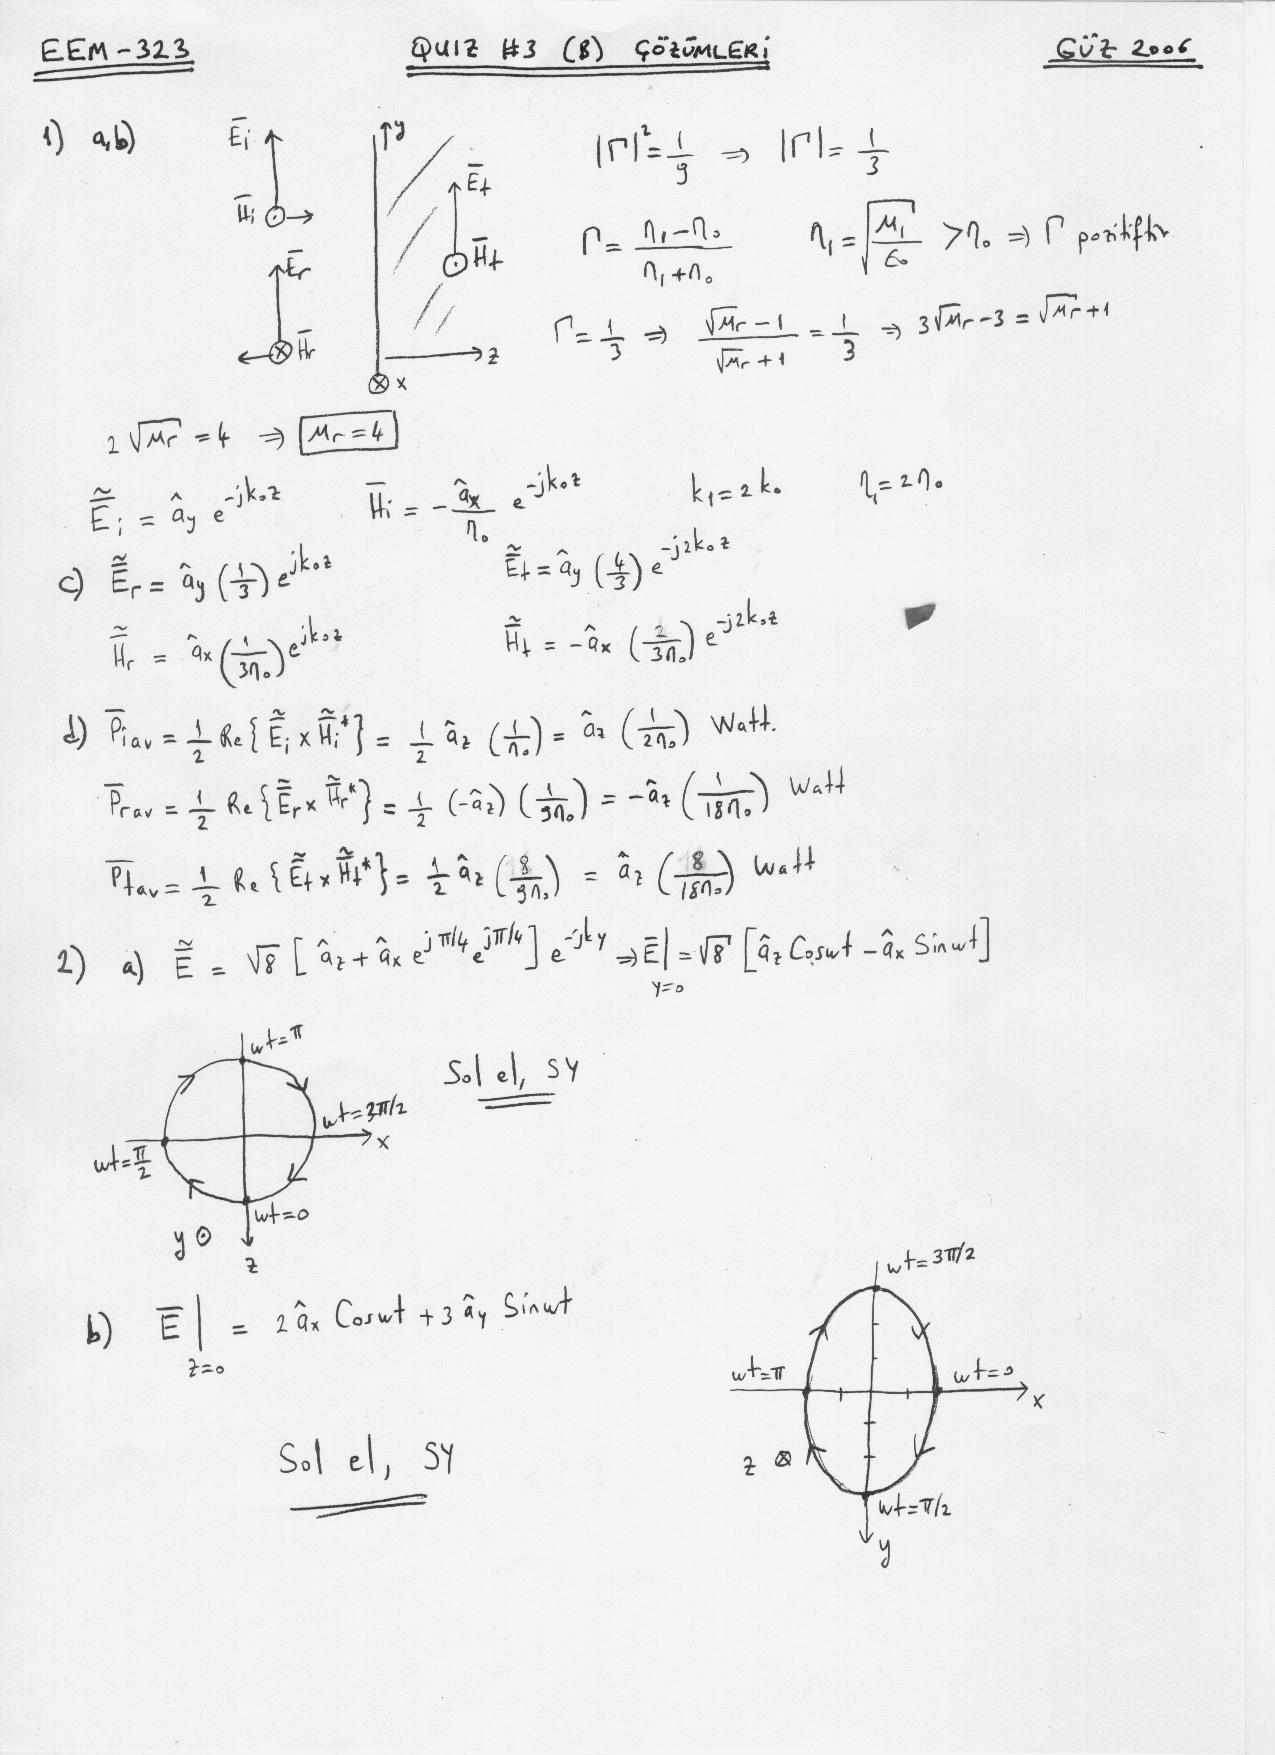 EEM-323 QUIZ #3 (B) ÇÖZÜMLERİ GÜZ 2006
1) a,b) E̅i H̅i E̅r H̅r y E̅t H̅t z x
|Γ|² = 1/9 ⇒ |Γ| = 1/3
Γ = (η₁-η₀)/(η₁+η₀) η₁ = √(μ₁/ε₀) > η₀ ⇒ Γ pozitiftir
Γ = 1/3 ⇒ (√μr - 1)/(√μr + 1) = 1/3 ⇒ 3√μr - 3 = √μr + 1
2√μr = 4 ⇒ μr = 4
Ẽ̅i = ây e^(-jk₀z) H̅i = -(âx/η₀) e^(-jk₀z) k₁ = 2k₀ η₁ = 2η₀
c) Ẽ̅r = ây (1/3) e^(jk₀z) Ẽ̅t = ây (4/3) e^(-j2k₀z)
H̃̅r = âx (1/3η₀) e^(jk₀z) H̃̅t = -âx (2/3η₀) e^(-j2k₀z)
d) P̅iav = 1/2 Re{Ẽ̅i x H̃̅i*} = 1/2 âz (1/η₀) = âz (1/2η₀) Watt.
P̅rav = 1/2 Re{Ẽ̅r x H̃̅r*} = 1/2 (-âz) (1/9η₀) = -âz (1/18η₀) Watt
P̅tav = 1/2 Re{Ẽ̅t x H̃̅t*} = 1/2 âz (8/9η₀) = âz (8/18η₀) Watt
2) a) Ẽ̅ = √8 [âz + âx e^(jπ/4) e^(jπ/4)] e^(-jky) ⇒ E̅|y=0 = √8 [âz Coswt - âx Sinwt]
wt=π
Sol el, SY
wt=3π/2
x
wt=π/2
wt=0
y
z
b) E̅|z=0 = 2 âx Coswt + 3 ây Sinwt
wt=3π/2
wt=π wt=0
x
Sol el, SY
z
wt=π/2
y